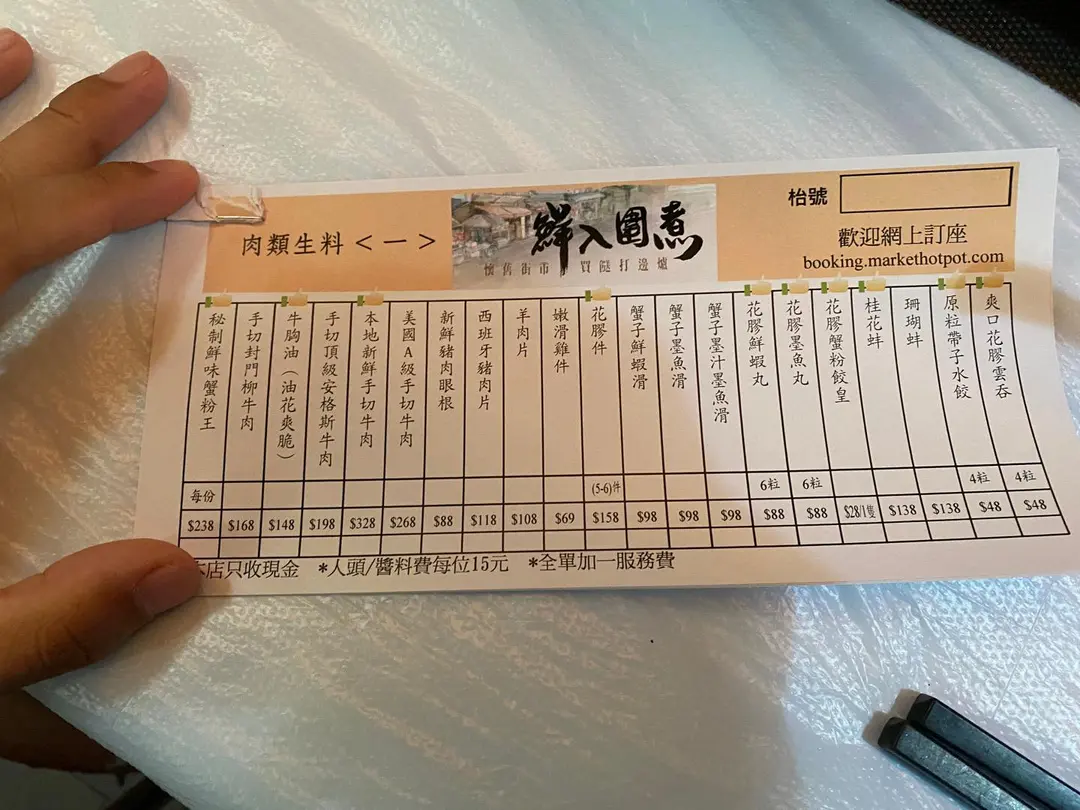 肉類生料＜一＞
鮮入圍煮
懷舊街市 買餸打邊爐
枱號
歡迎網上訂座
booking.markethotpot.com
秘制鮮味蟹粉王
手切封門柳牛肉
牛胸油（油花爽脆）
手切頂級安格斯牛肉
本地新鮮手切牛肉
美國A級手切牛肉
新鮮豬肉眼根
西班牙豬肉片
羊肉片
嫩滑雞件
花膠件
蟹子鮮蝦滑
蟹子墨魚滑
蟹子墨汁墨魚滑
花膠鮮蝦丸
花膠墨魚丸
花膠蟹粉餃皇
桂花蚌
珊瑚蚌
原粒帶子水餃
爽口花膠雲吞
每份 (5-6)件 6粒 6粒 4粒 4粒
$238 $168 $148 $198 $328 $268 $88 $118 $108 $69 $158 $98 $98 $98 $88 $88 $28/1隻 $138 $138 $48 $48
本店只收現金 *人頭/醬料費每位15元 *全單加一服務費